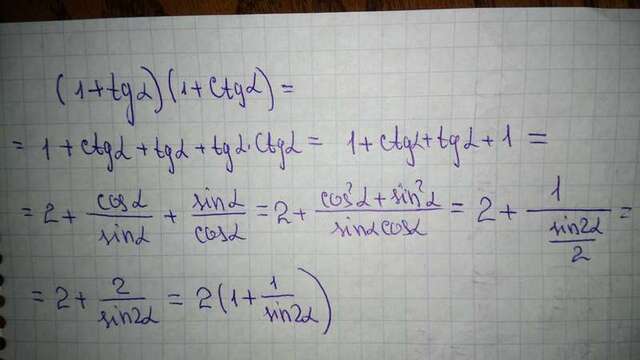 (1+tgα)(1+ctgα)=
= 1+ctgα+tgα+tgα·ctgα= 1+ctgα+tgα+1 =
=2+ cosα/sinα + sinα/cosα =2+ (cos²α+sin²α)/(sinαcosα) = 2+ 1/(sin2α/2) =
= 2+ 2/sin2α = 2(1+ 1/sin2α)